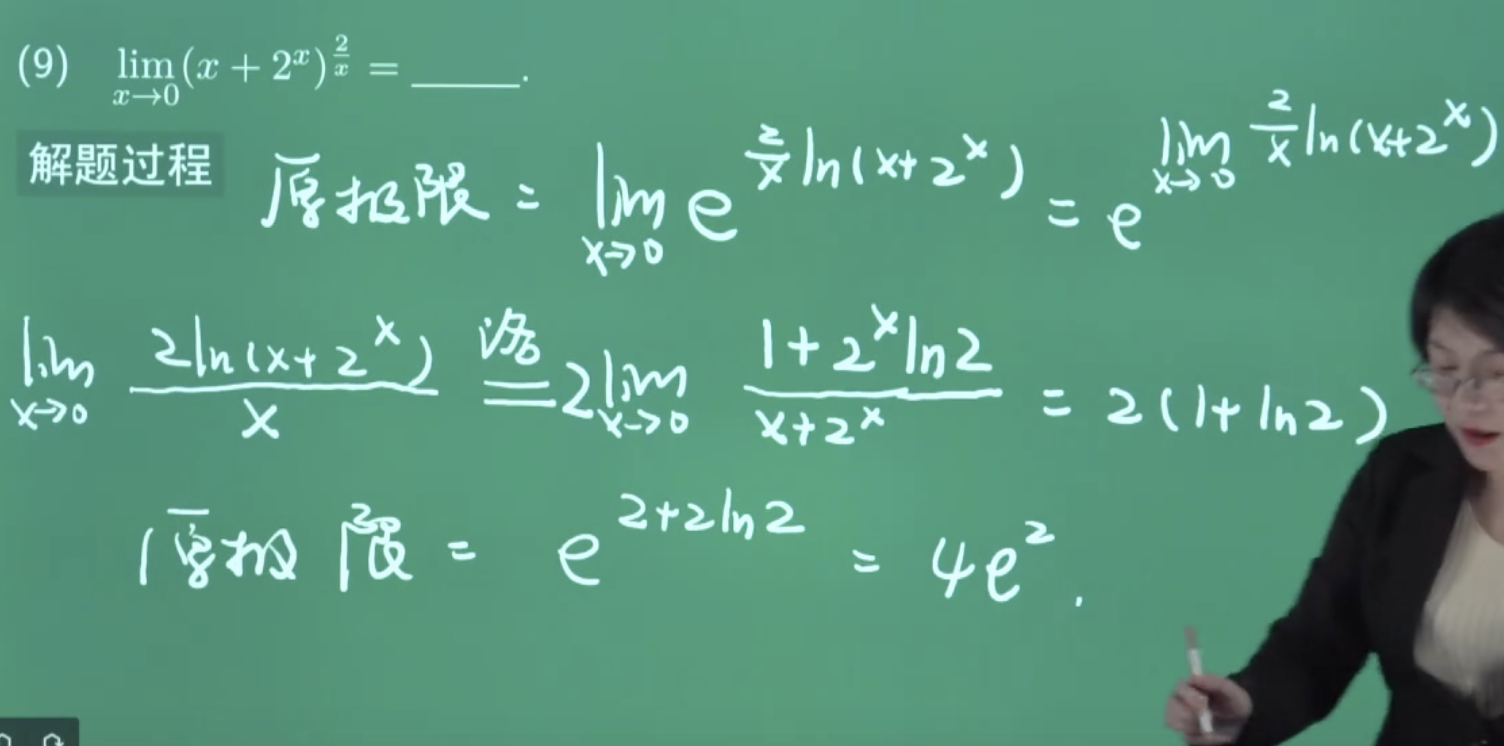 (9) lim_{x→0} (x + 2^x)^{2/x} = ______.
解题过程 原极限 = lim_{x→0} e^{2/x ln(x+2^x)} = e^{lim_{x→0} 2/x ln(x+2^x)}
lim_{x→0} 2ln(x+2^x)/x 洛= 2 lim_{x→0} (1+2^x ln2)/(x+2^x) = 2(1+ln2)
原极限 = e^{2+2ln2} = 4e^2.